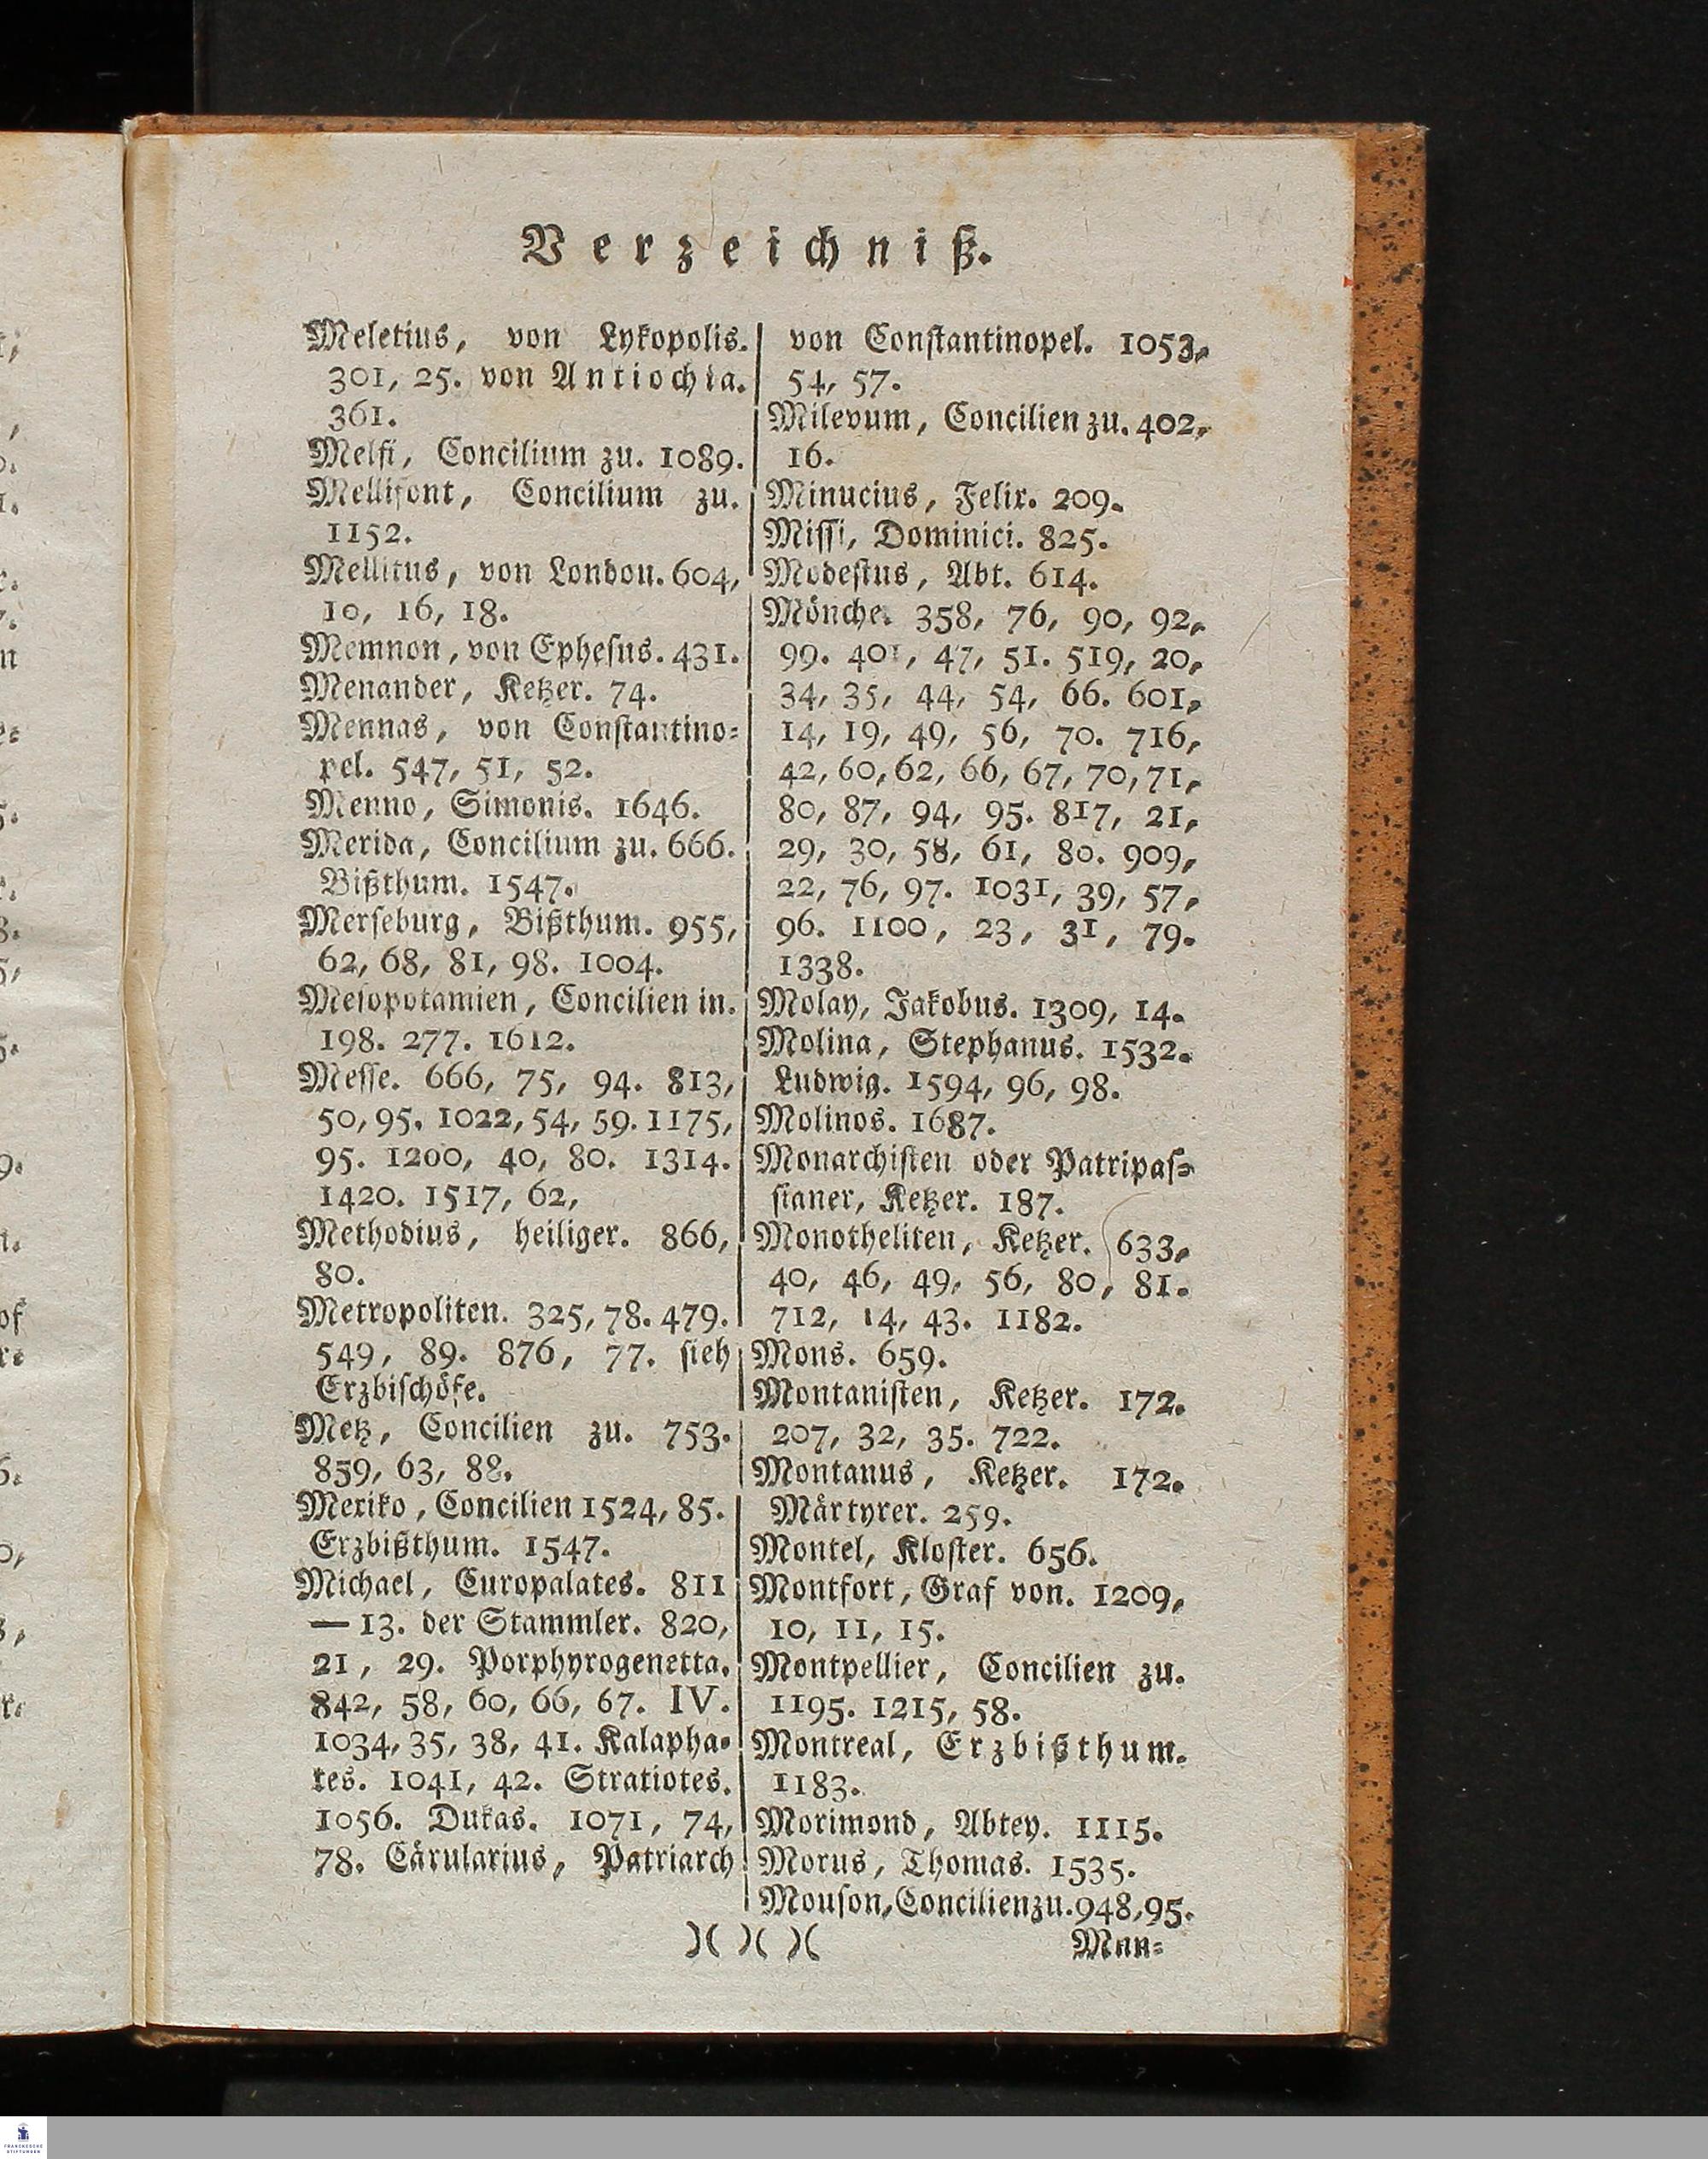 Verzeichniß.
Meletius, von Lykopolis.
301, 25. von Antiochia.
361.
Melfi, Concilium zu. 1089.
Mellifont, Concilium zu.
1152.
Mellitus, von London. 604,
10, 16, 18.
Memnon, von Ephesus. 431.
Menander, Ketzer. 74.
Mennas, von Constantino=
pel. 547, 51, 52.
Menno, Simonis. 1646.
Merida, Concilium zu. 666.
Bißthum. 1547.
Merseburg, Bißthum. 955,
62, 68, 81, 98. 1004.
Mesopotamien, Concilien in.
198. 277. 1612.
Messe. 666, 75, 94. 813,
50, 95. 1022, 54, 59. 1175,
95. 1200, 40, 80. 1314.
1420. 1517, 62,
Methodius, heiliger. 866,
80.
Metropoliten. 325, 78. 479.
549, 89. 876, 77. sieh
Erzbischöfe.
Metz, Concilien zu. 753.
859, 63, 88.
Mexiko, Concilien 1524, 85.
Erzbißthum. 1547.
Michael, Europalates. 811
— 13. der Stammler. 820,
21, 29. Porphyrogenetta.
842, 58, 60, 66, 67. IV.
1034, 35, 38, 41. Kalapha=
tes. 1041, 42. Stratiotes.
1056. Dukas. 1071, 74,
78. Cärularius, Patriarch
von Constantinopel. 1053,
54, 57.
Milevum, Concilien zu. 402,
16.
Minucius, Felix. 209.
Missi, Dominici. 825.
Modestus, Abt. 614.
Mönche. 358, 76, 90, 92,
99. 401, 47, 51. 519, 20,
34, 35, 44, 54, 66. 601,
14, 19, 49, 56, 70. 716,
42, 60, 62, 66, 67, 70, 71,
80, 87, 94, 95. 817, 21,
29, 30, 58, 61, 80. 909,
22, 76, 97. 1031, 39, 57,
96. 1100, 23, 31, 79.
1338.
Molay, Jakobus. 1309, 14.
Molina, Stephanus. 1532.
Ludwig. 1594, 96, 98.
Molinos. 1687.
Monarchisten oder Patripas=
sianer, Ketzer. 187.
Monotheliten, Ketzer. 633,
40, 46, 49, 56, 80, 81.
712, 14, 43. 1182.
Mons. 659.
Montanisten, Ketzer. 172.
207, 32, 35. 722.
Montanus, Ketzer. 172.
Märtyrer. 259.
Montel, Kloster. 656.
Montfort, Graf von. 1209,
10, 11, 15.
Montpellier, Concilien zu.
1195. 1215, 58.
Montreal, Erzbißthum.
1183.
Morimond, Abtey. 1115.
Morus, Thomas. 1535.
Mouson, Concilien zu. 948, 95.
)( )( )(
FRANCKESCHE
STIFTUNGEN